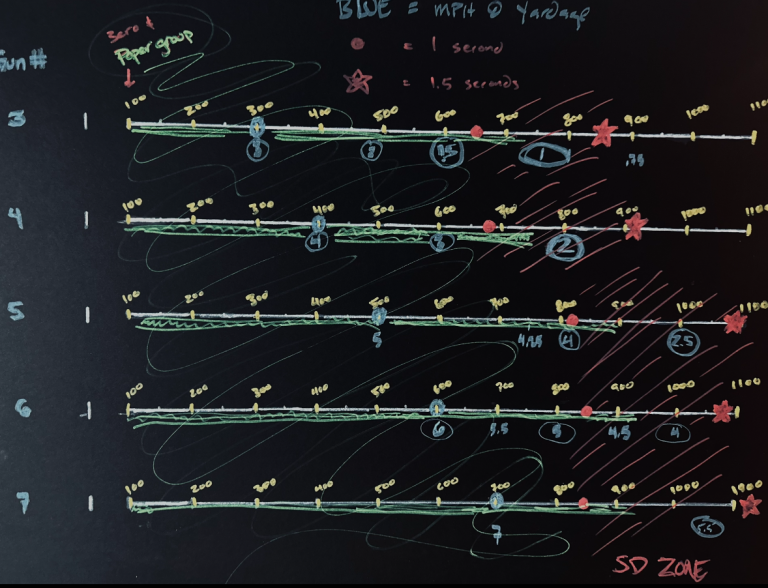 BLUE = MPH @ Yardage
Zero &
Paper group
= 1 second
= 1.5 seconds
Gun #
100 200 300 400 500 600 700 800 900 1000 1100
3
3 2 1.5 1 .75
100 200 300 400 500 600 700 800 900 1000 1100
4
4 3 2
100 200 300 400 500 600 700 800 900 1000 1100
5
5 4 2.5
100 200 300 400 500 600 700 800 900 1000 1100
6
6 5.5 5 4.5 4
100 200 300 400 500 600 700 800 900 1000 1100
7
7 5.5
SD ZONE